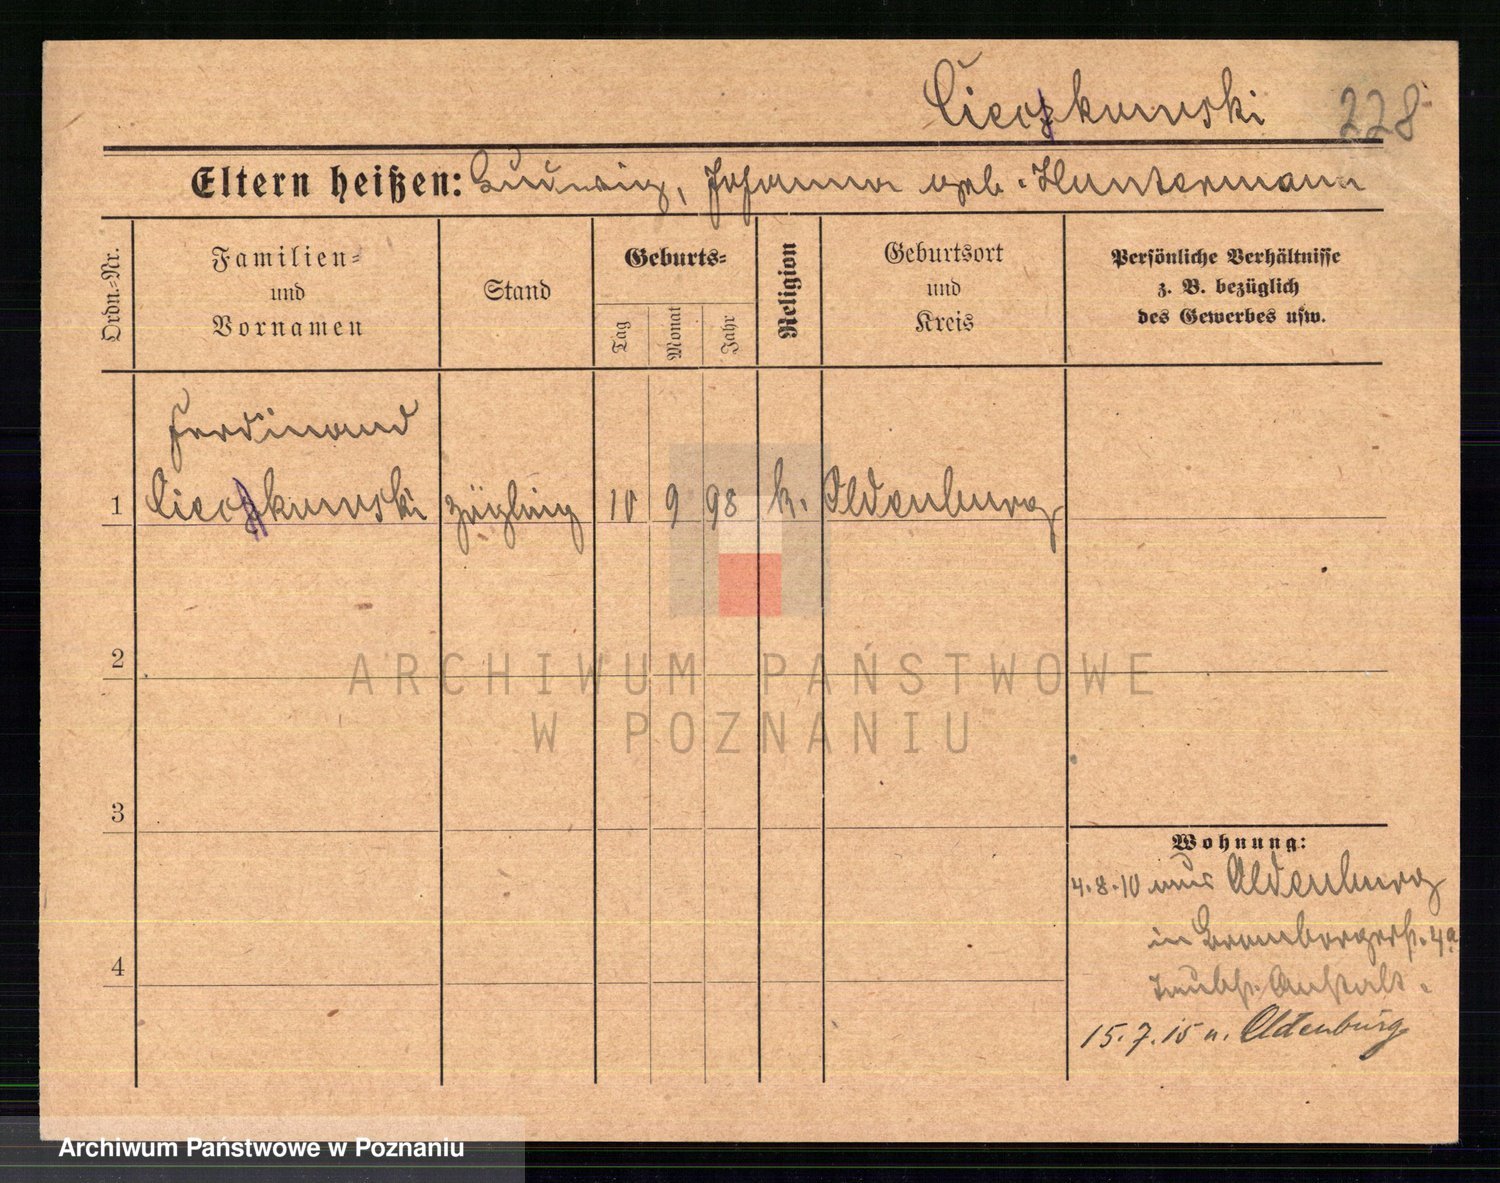 Cieczkumski 228
Eltern heißen: Ludwig, Johanna geb. Huntermann
Ordn.-Nr.
Familien-
und
Vornamen
Stand
Geburts-
Tag
Monat
Jahr
Religion
Geburtsort
und
Kreis
Persönliche Verhältnisse
z. B. bezüglich
des Gewerbes usw.
Ferdinand
1 Zögling 10 9 98 k. Oldenburg
2
ARCHIWUM PAŃSTWOWE
W POZNANIU
3
Wohnung:
4.8.10 aus Oldenburg
in Brombergerst. 4a
4
Taubst. Anstalt.
15.7.15 n. Oldenburg
Archiwum Państwowe w Poznaniu